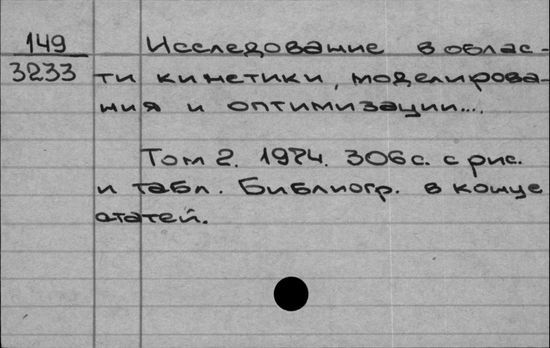 149
3233
Исследование в облас-
ти кинетики, моделирова-
ния и оптимизации...
Том 2. 1974. 306 с. с рис.
и табл. Библиогр. в конце
статей.